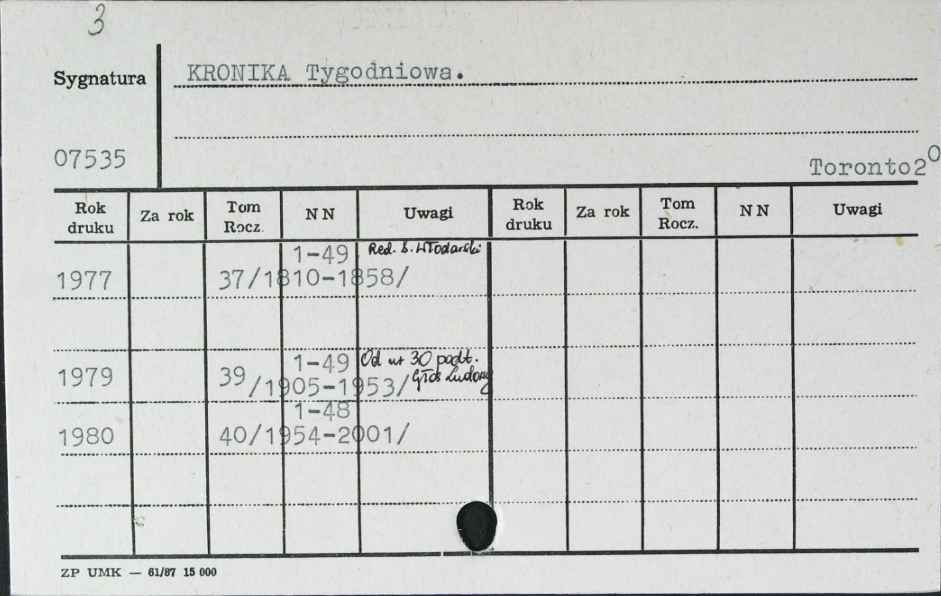 3
Sygnatura KRONIKA Tygodniowa.
07535 Toronto 2°
Rok druku Za rok Tom Rocz. NN Uwagi Rok druku Za rok Tom Rocz. NN Uwagi
1-49 Red. S. Włodarski
1977 37/1810-1858/
1-49 Od nr 30 podt.
1979 39/1905-1953/ Głos Ludowy
1-48
1980 40/1954-2001/
ZP UMK — 61/87 15 000